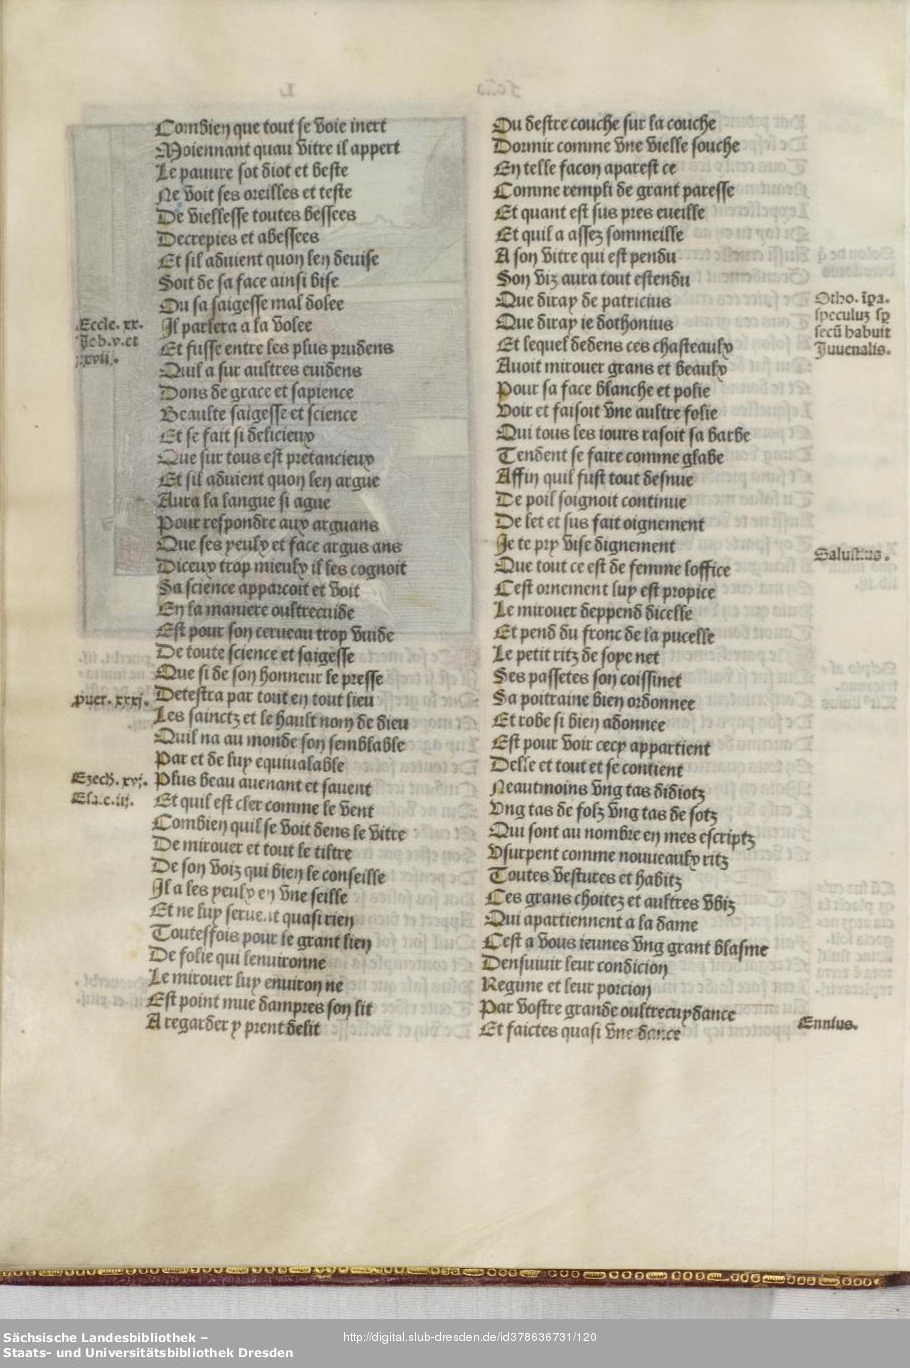 Combien que tout se voie inert
Moiennant quau vitre il appert
Le pauure sot diot et beste
Ne voit ses oreilles et teste
De viellesse toutes bessees
Decrepies et abessees
Et sil aduient quon len deuise
Soit de sa face ainsi bise
Ou sa saigesse mal dolee
.Eccle. xx.
Il parlera a la volee
Job.v.et
Et fusse entre les plus prudens
xvii.
Quil a sur aultres euidens
Dons de grace et sapience
Beaulte saigesse et science
Et se fait si delicieux
Que sur tous est pretancieux
Et sil aduient quon len argue
Aura la langue si ague
Pour respondre aux arguans
Que ses yeulx et face argus ans
Diceux trop mieulx il les cognoit
Sa science apparcoit et voit
En la maniere oultrecuide
Est pour son cerueau trop vuide
De toute science et saigesse
Que si de son honneur le presse
prouer. xxxj.
Detestra par tout en tout lieu
Les sainctz et le hault nom de dieu
Quil na au monde son semblable
Par et de luy equiualable
Ezech. xvj.
Plus beau auenant et sauent
Esa.c.iij.
Et quil est cler comme le vent
Combien quil se voit dens le vitre
De mirouer et tout le tiltre
De son voiz qui bien le conseille
Il a les yeulx en vne seille
Et ne luy seruent quasi rien
Toutesfois pour le grant lien
De folie qui lenuironne
Le mirouer luy enuiron ne
Est point mue dampres son lit
A regarder y prent delit
Ou destre couche sur la couche
Dormir comme vne vielle souche
En telle facon aparest ce
Comme rempli de grant paresse
Et quant est sus pres eueille
Et quil a assez sommeille
A son vitre qui est pendu
Son viz aura tout estendu
Que diray de patricius
Otho. īpa.
Que diray ie dothonius
speculuz sp
Et lequel dedens ces chasteaulx
secū habuit
Auoit mirouer grans et beaulx
Juuenalis.
Pour sa face blanche et polie
Voir et faisoit vne aultre folie
Qui tous les iours rasoit sa barbe
Tendent se faire comme glabe
Affin quil fust tout desnue
De poil soignoit continue
De let et sus fait oignement
Je te pry vise dignement
Que tout ce est de femme loffice
Salustius.
Cest ornement luy est propice
Le mirouer deppend dicelle
Et pend du fronc de la pucelle
Le petit ritz de soye net
Ses passetes son coissinet
Sa poitraine bien ordonnee
Et robe si bien adonnee
Est pour voir cecy appartient
Delle et tout et se contient
Neautmoins vng tas didiotz
Vng tas de folz vng tas de sotz
Qui sont au nombre en mes escriptz
Vsurpent comme nouueaulx ritz
Toutes vestures et habitz
Ces grans choitez et aultres vbiz
Qui apartiennent a la dame
Cest a vous ieunes vng grant blasme
Densuiuir leur condicion
Regime et leur porcion
Par vostre grande oultrecuydance
Ennius.
Et faictes quasi vne dance
Sächsische Landesbibliothek –
Staats- und Universitätsbibliothek Dresden
http://digital.slub-dresden.de/id378636731/120